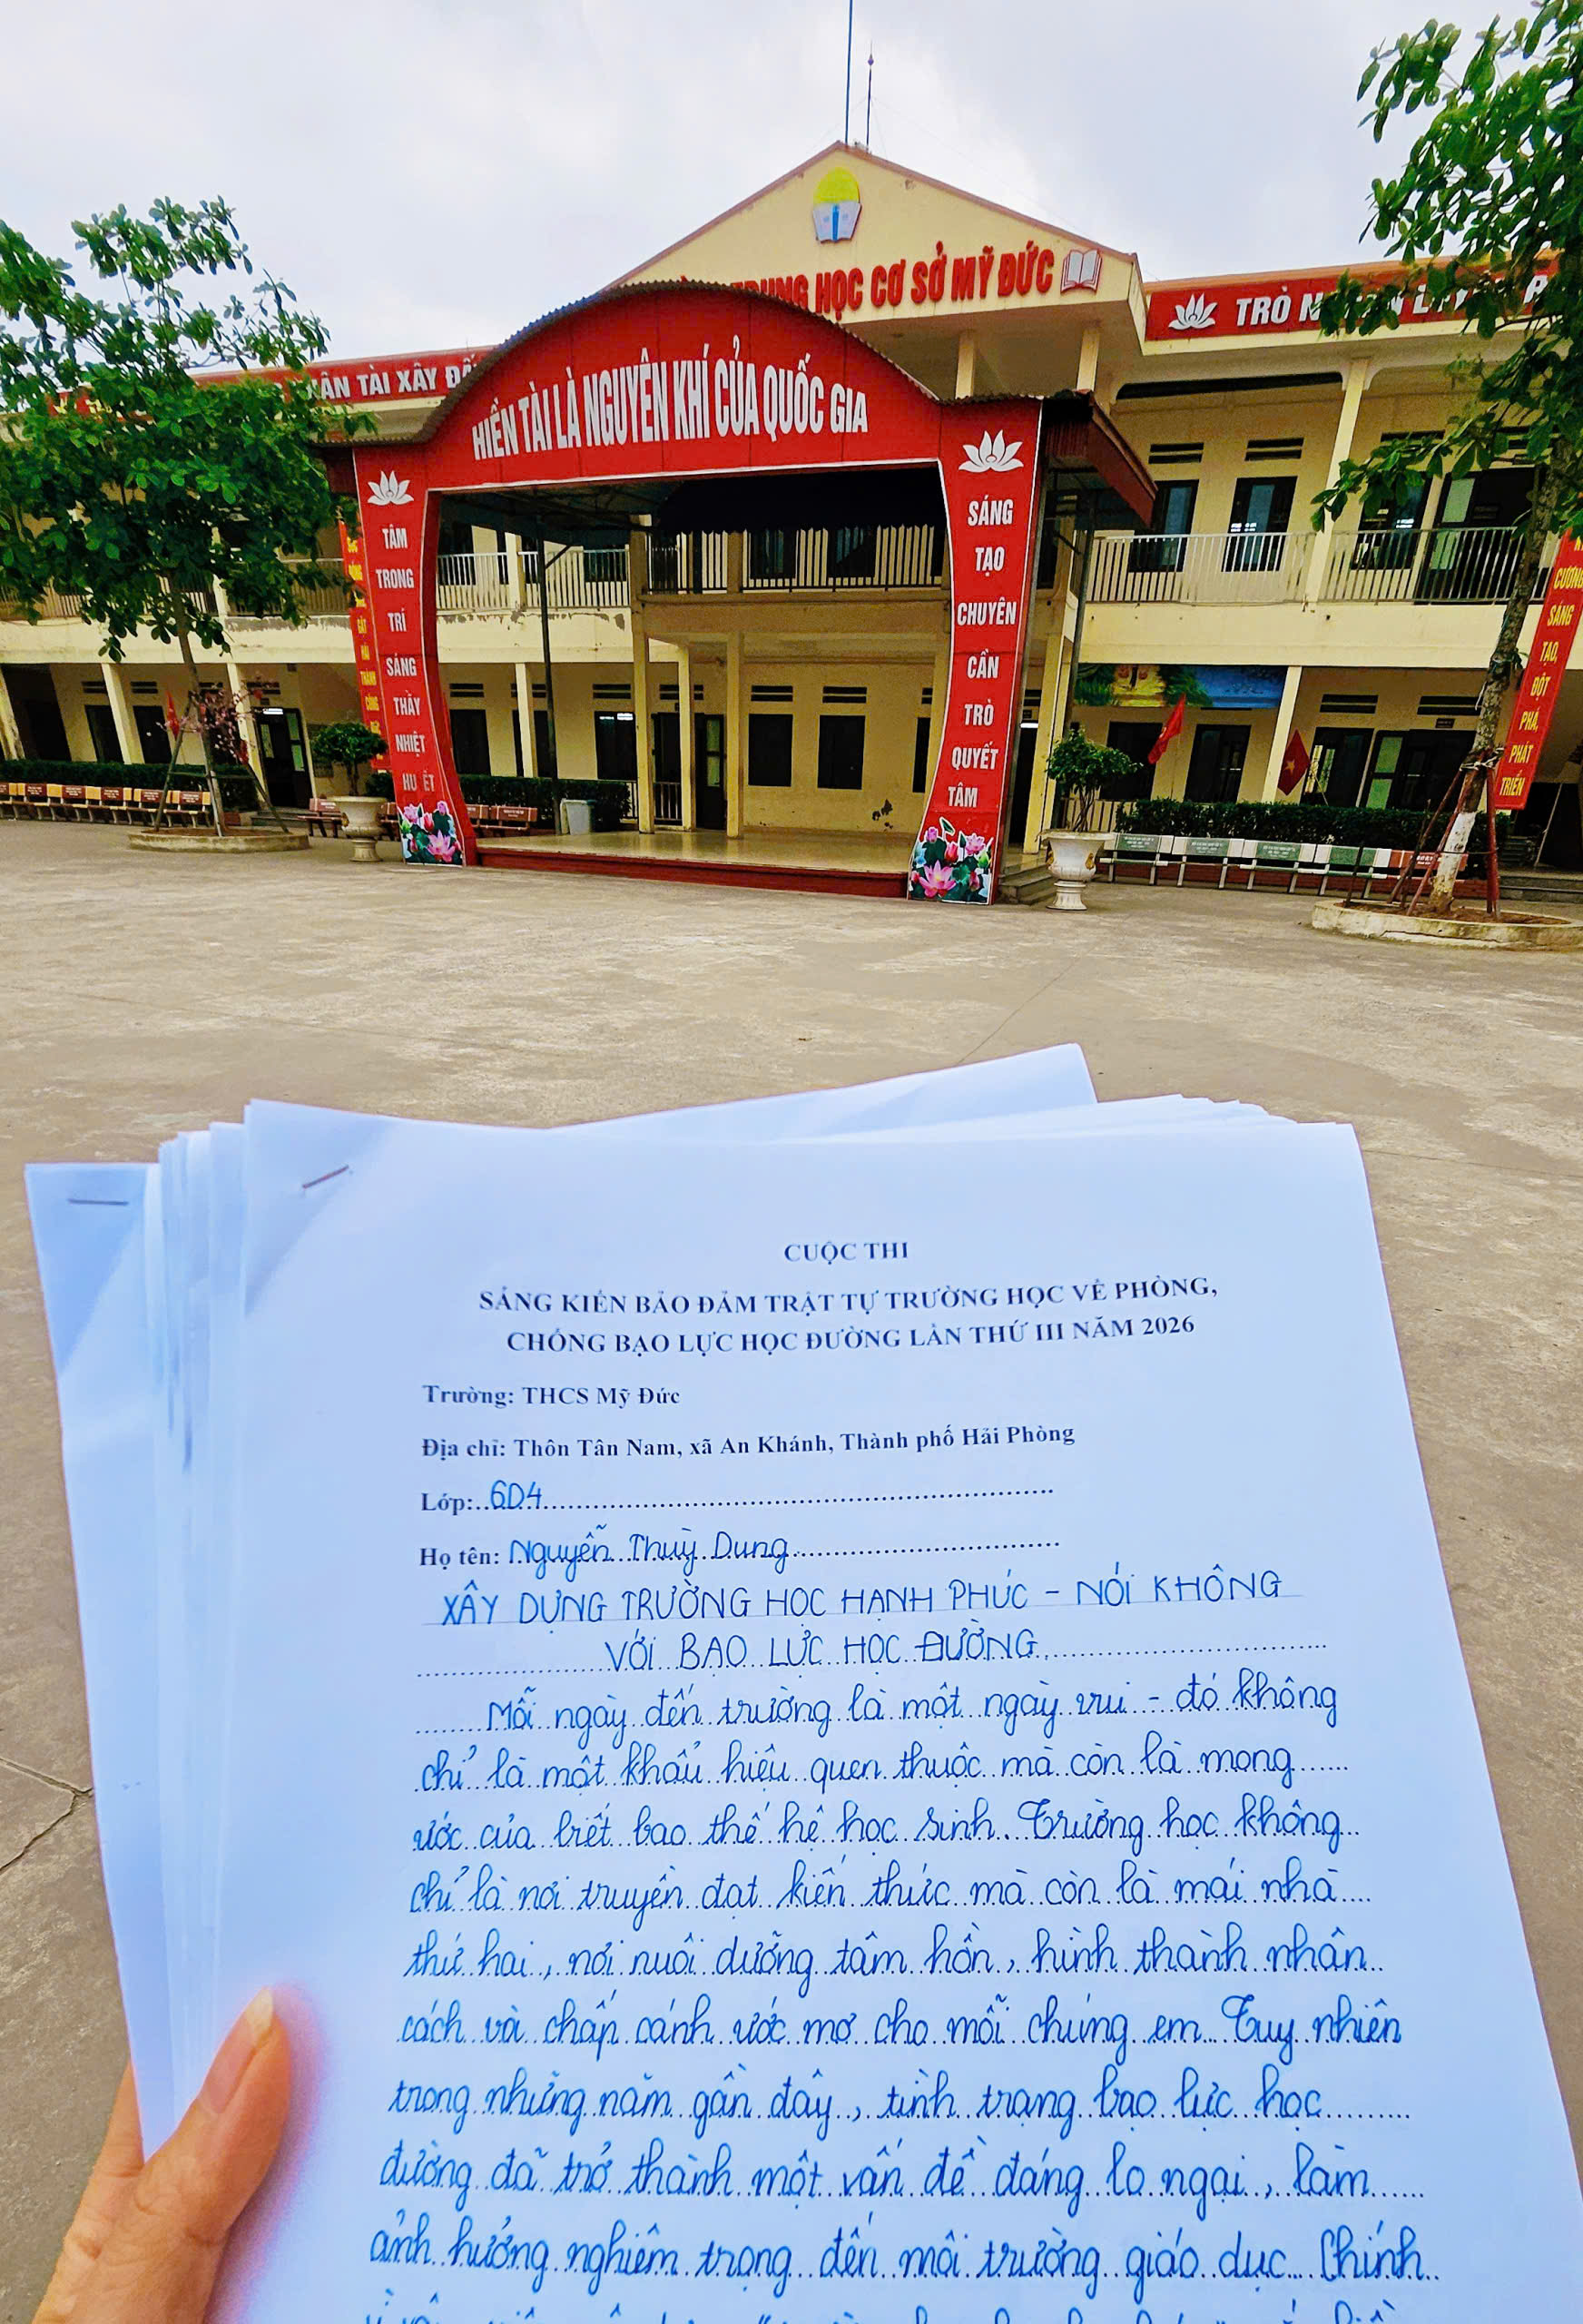 TRUNG HỌC CƠ SỞ MỸ ĐỨC
NHÂN TÀI XÂY ĐẤ
TRÒ
HIỀN TÀI LÀ NGUYÊN KHÍ CỦA QUỐC GIA
TÂM
TRONG
TRÍ
SÁNG
THẦY
NHIỆT
HU ẾT
SÁNG
TẠO
CHUYÊN
CẦN
TRÒ
QUYẾT
TÂM
CƯƠNG
SÁNG
TẠO,
ĐỘT
PHÁ,
PHÁT
TRIỂN
CUỘC THI
SÁNG KIẾN BẢO ĐẢM TRẬT TỰ TRƯỜNG HỌC VỀ PHÒNG,
CHỐNG BẠO LỰC HỌC ĐƯỜNG LẦN THỨ III NĂM 2026
Trường: THCS Mỹ Đức
Địa chỉ: Thôn Tân Nam, xã An Khánh, Thành phố Hải Phòng
Lớp: 6D4
Họ tên: Nguyễn Thuỳ Dung
XÂY DỰNG TRƯỜNG HỌC HẠNH PHÚC - NÓI KHÔNG
VỚI BẠO LỰC HỌC ĐƯỜNG
Mỗi ngày đến trường là một ngày vui - đó không
chỉ là một khẩu hiệu quen thuộc mà còn là mong
ước của biết bao thế hệ học sinh. Trường học không
chỉ là nơi truyền đạt kiến thức mà còn là mái nhà
thứ hai, nơi nuôi dưỡng tâm hồn, hình thành nhân
cách và chắp cánh ước mơ cho mỗi chúng em. Tuy nhiên
trong những năm gần đây, tình trạng bạo lực học
đường đã trở thành một vấn đề đáng lo ngại, làm
ảnh hưởng nghiêm trọng đến môi trường giáo dục. Chính